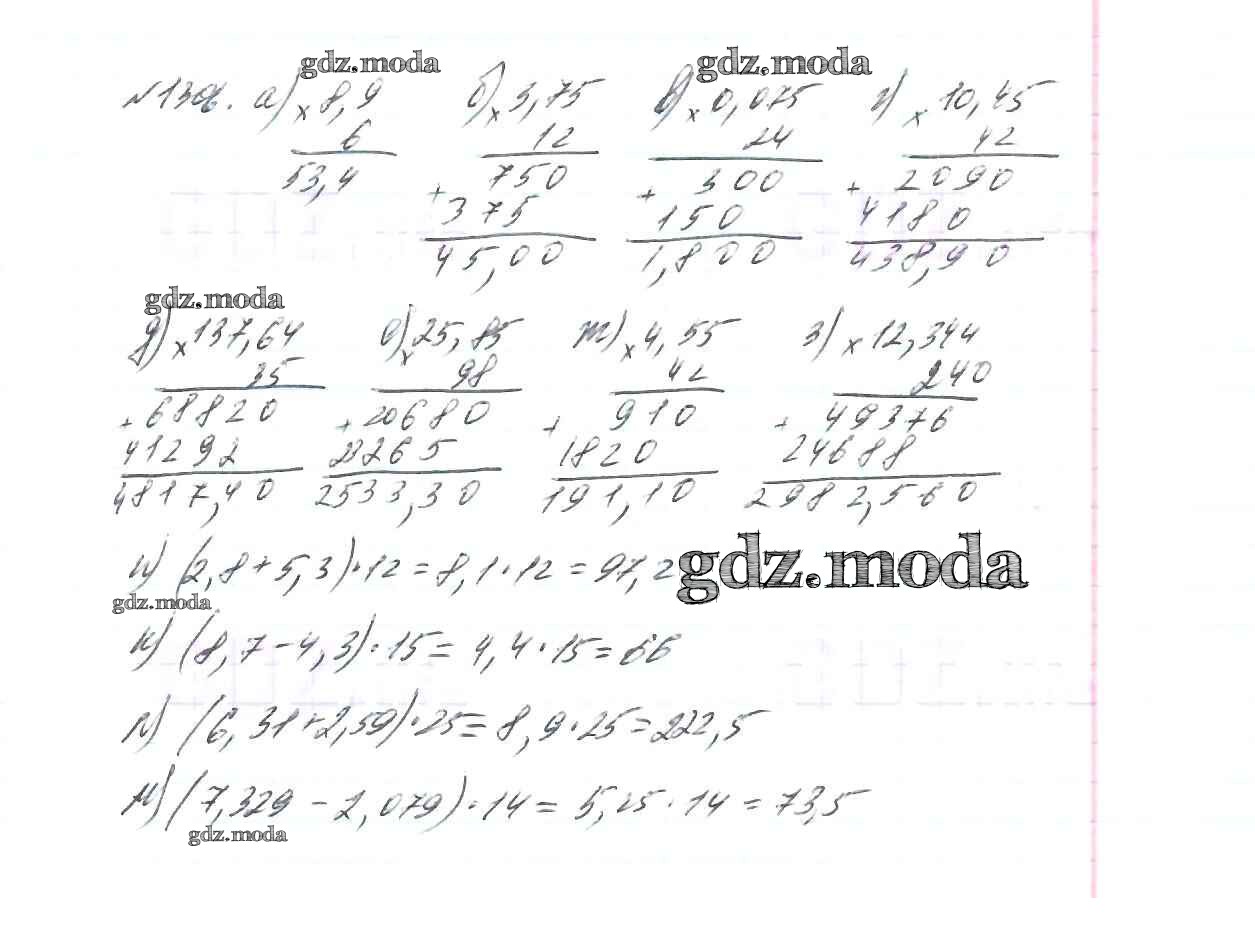 gdz.moda gdz.moda
а) × 8,9 б) × 3,75 в) × 0,075 г) × 10,45
6 12 24 42
53,4 + 750 + 300 + 2090
375 150 4180
45,00 1,800 438,90
gdz.moda
д) × 137,64 е) × 25,85 ж) × 4,55 з) × 12,344
35 98 42 240
+ 68820 + 20680 + 910 + 49376
41292 23265 1820 24688
4817,40 2533,30 191,10 2982,560
и) (2,8+5,3)·12=8,1·12=97,2 gdz.moda
gdz.moda
к) (8,7-4,3)·15=4,4·15=66
л) (6,31+2,59)·25=8,9·25=222,5
м) (7,329-2,079)·14=5,25·14=73,5
gdz.moda